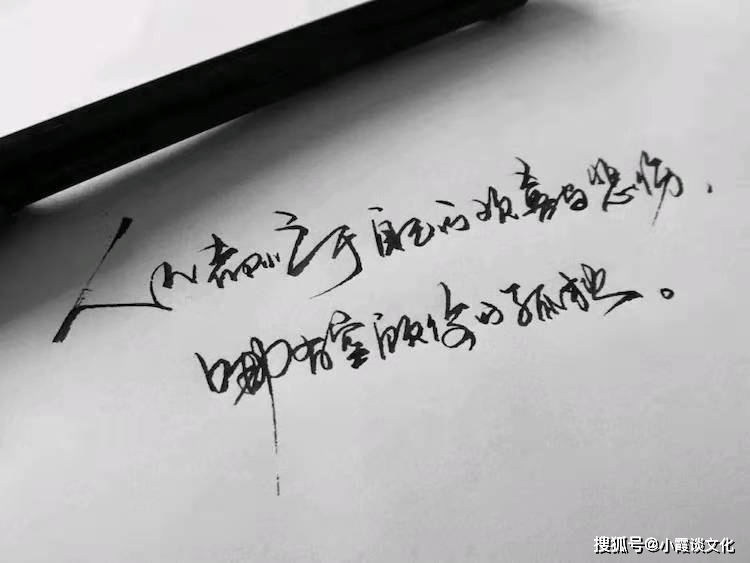 人们都忙于自己的欢喜与悲伤，
哪有空顾你的孤独。
搜狐号@小霞谈文化